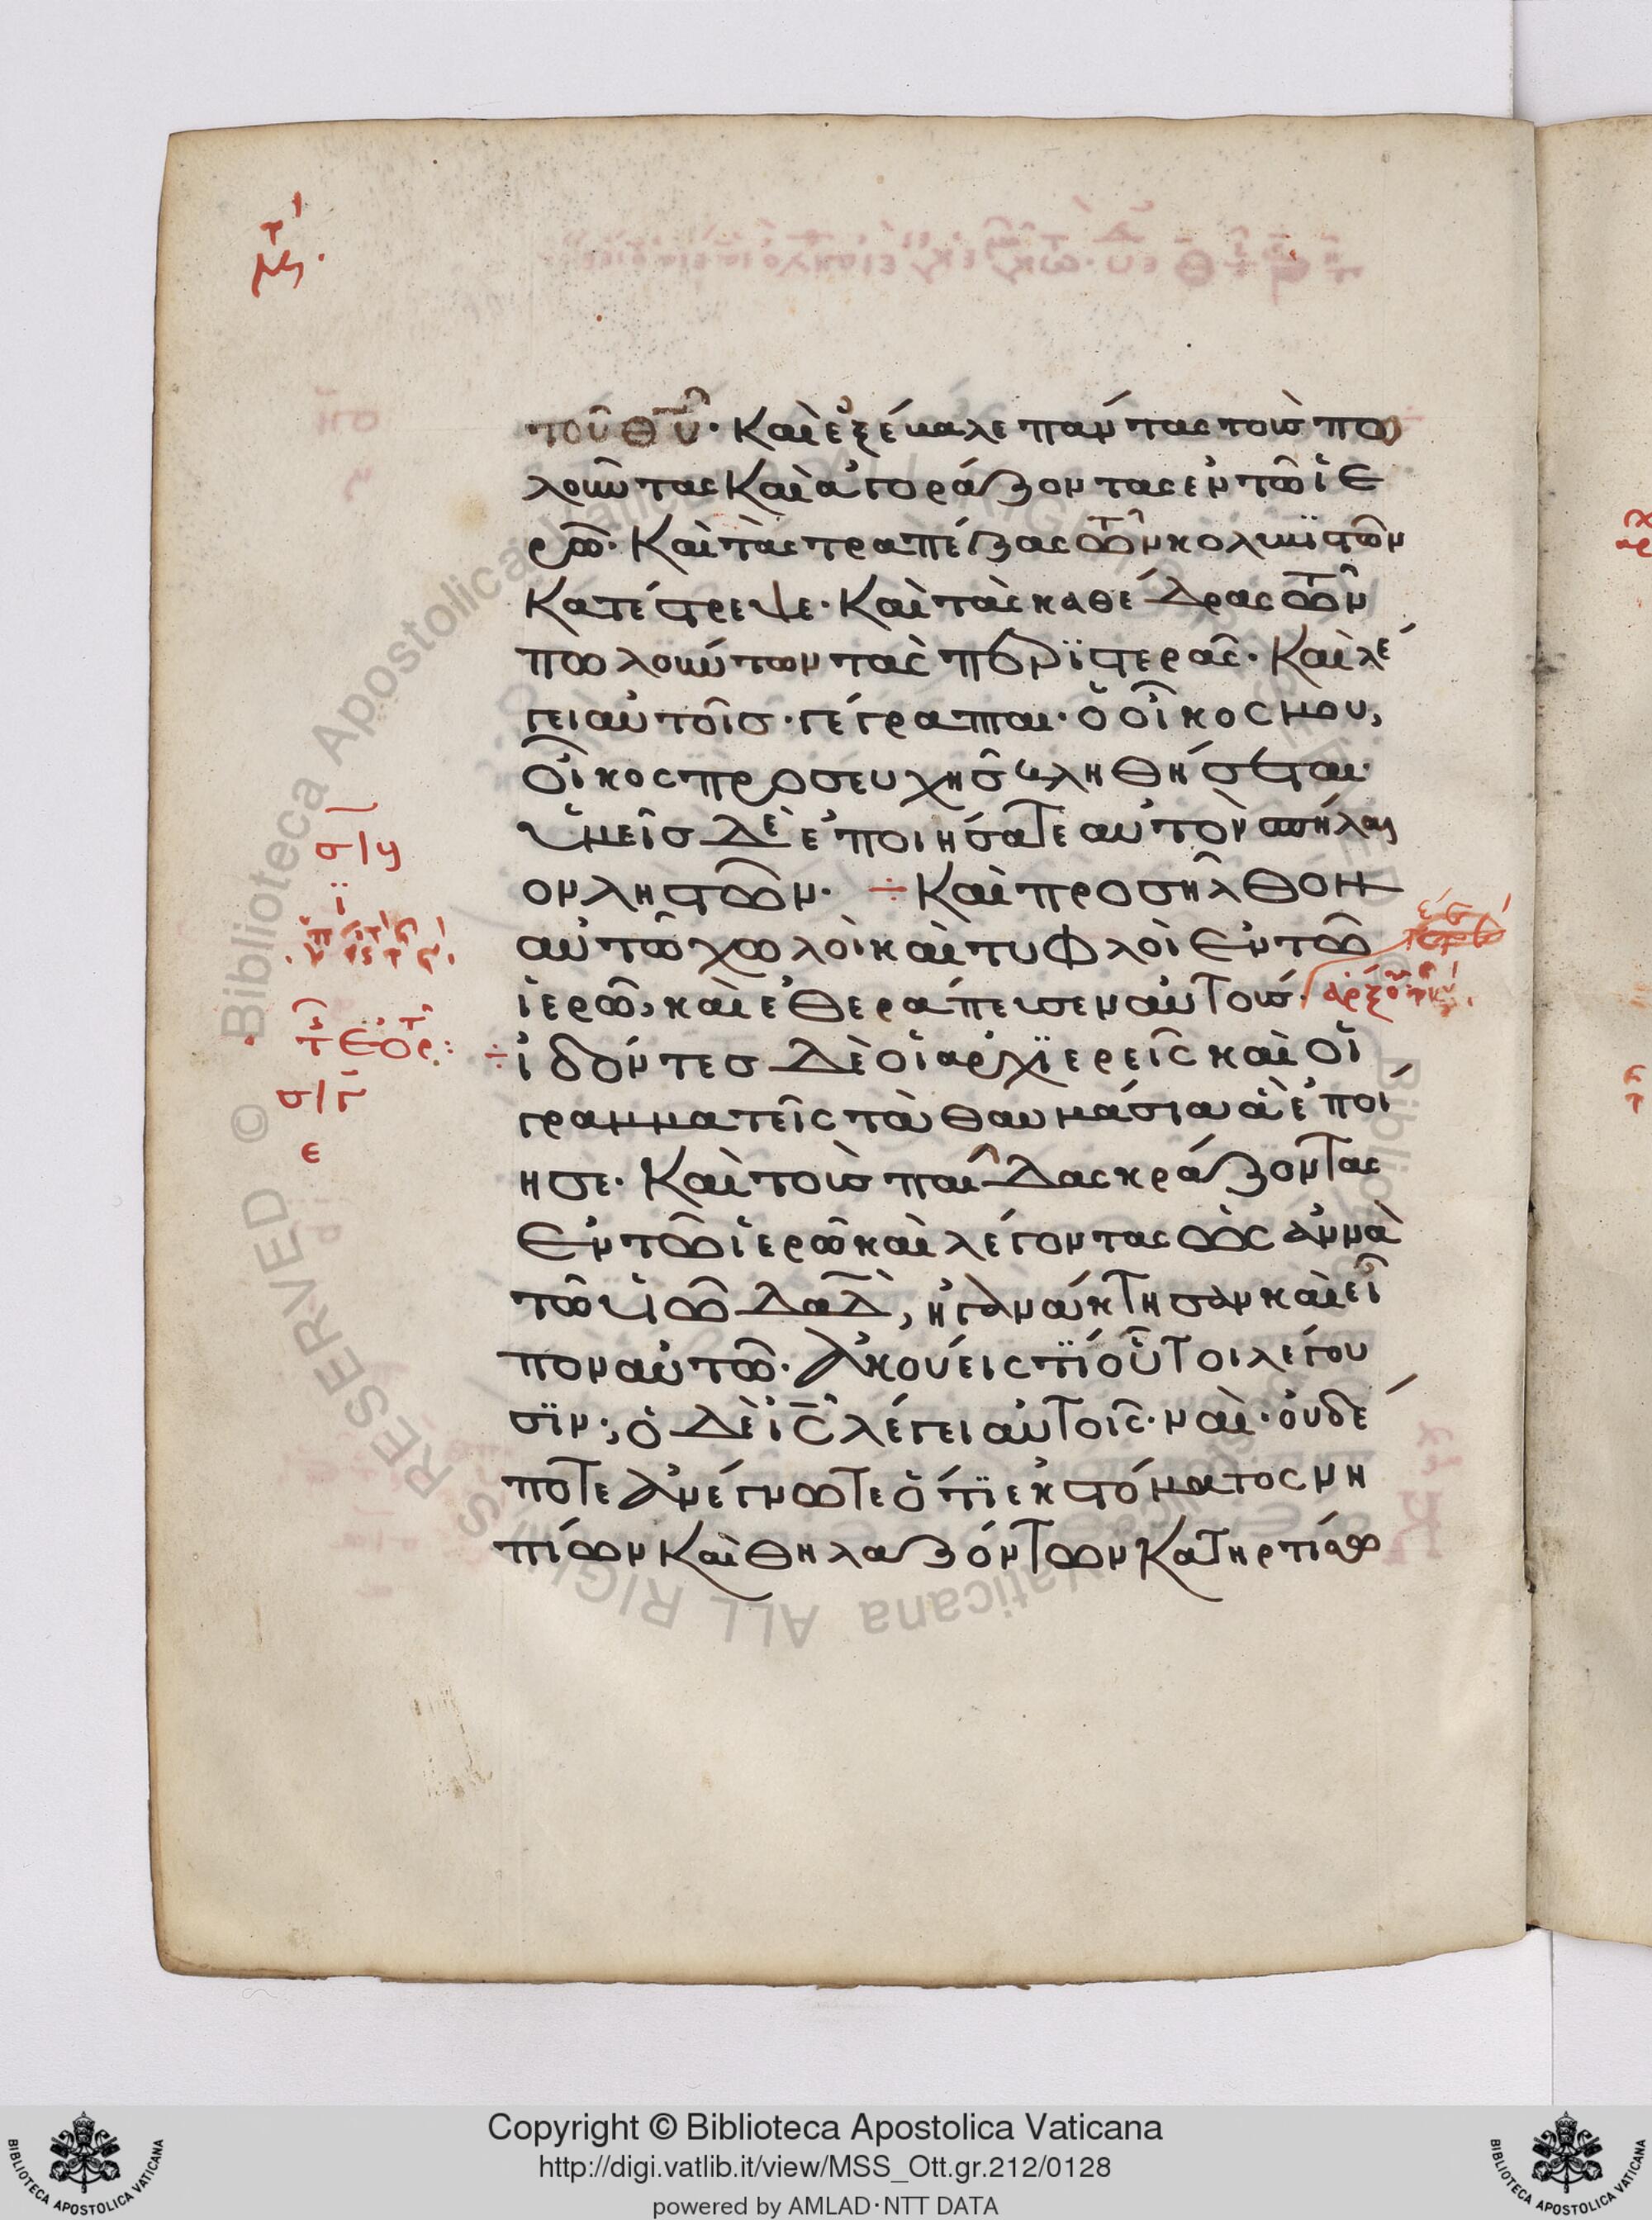 τοῦ θυ̅· Καὶ ἐξέβαλε πάντας τοὺς πω
λοῦντας Καὶ ἀγοράζοντας ἐν τῶ ἱε
ρῶ· Καὶ τὰς τραπέζας τῶν κολυβϊστῶν
Κατέστρεψε· Καὶ τὰς καθέδρας τῶν
πωλούντων τὰς περϊστεράς· Καὶ λέ
γει αὐτοῖσ· γέγραπται· ὁ οἶκος μου,
οἶκος προσευχῆσ κληθήσεται·
ὑμεῖσ δὲ ἐποιήσατε αὐτὸν σπήλαι
ον ληστῶν· ÷ Καὶ προσῆλθον
αὐτῶ χωλοὶ καὶ τυφλοὶ ἐν τῶ
ἱερῶ, καὶ ἐθεράπευσεν αὐτούς·
÷ ἰδόντεσ δὲ οἱ ἀρχϊερεῖς καὶ οἱ
γραμματεῖς τὰ θαυμάσια ἃ ἐποί
ησε· Καὶ τοὺς παῖδας κράζοντας
ἐν τῶ ἱερῶ καὶ λέγοντας ὡς ἀννὰ
τῶ υἱῶ δαδ̅, ἠγανάκτησαν καὶ εἶ
πον αὐτῶ· ἀκούεις τϊ οὗτοι λέγου
σϊν; ὁ δὲ ις̅ λέγει αὐτοῖς· ναὶ· οὐδέ
ποτε ἀνέγνωτε ὅτϊ ἐκ στόματος νη
πίων Καὶ θηλαζόντων Κατηρτίσω
Copyright © Biblioteca Apostolica Vaticana
http://digi.vatlib.it/view/MSS_Ott.gr.212/0128
powered by AMLAD·NTT DATA